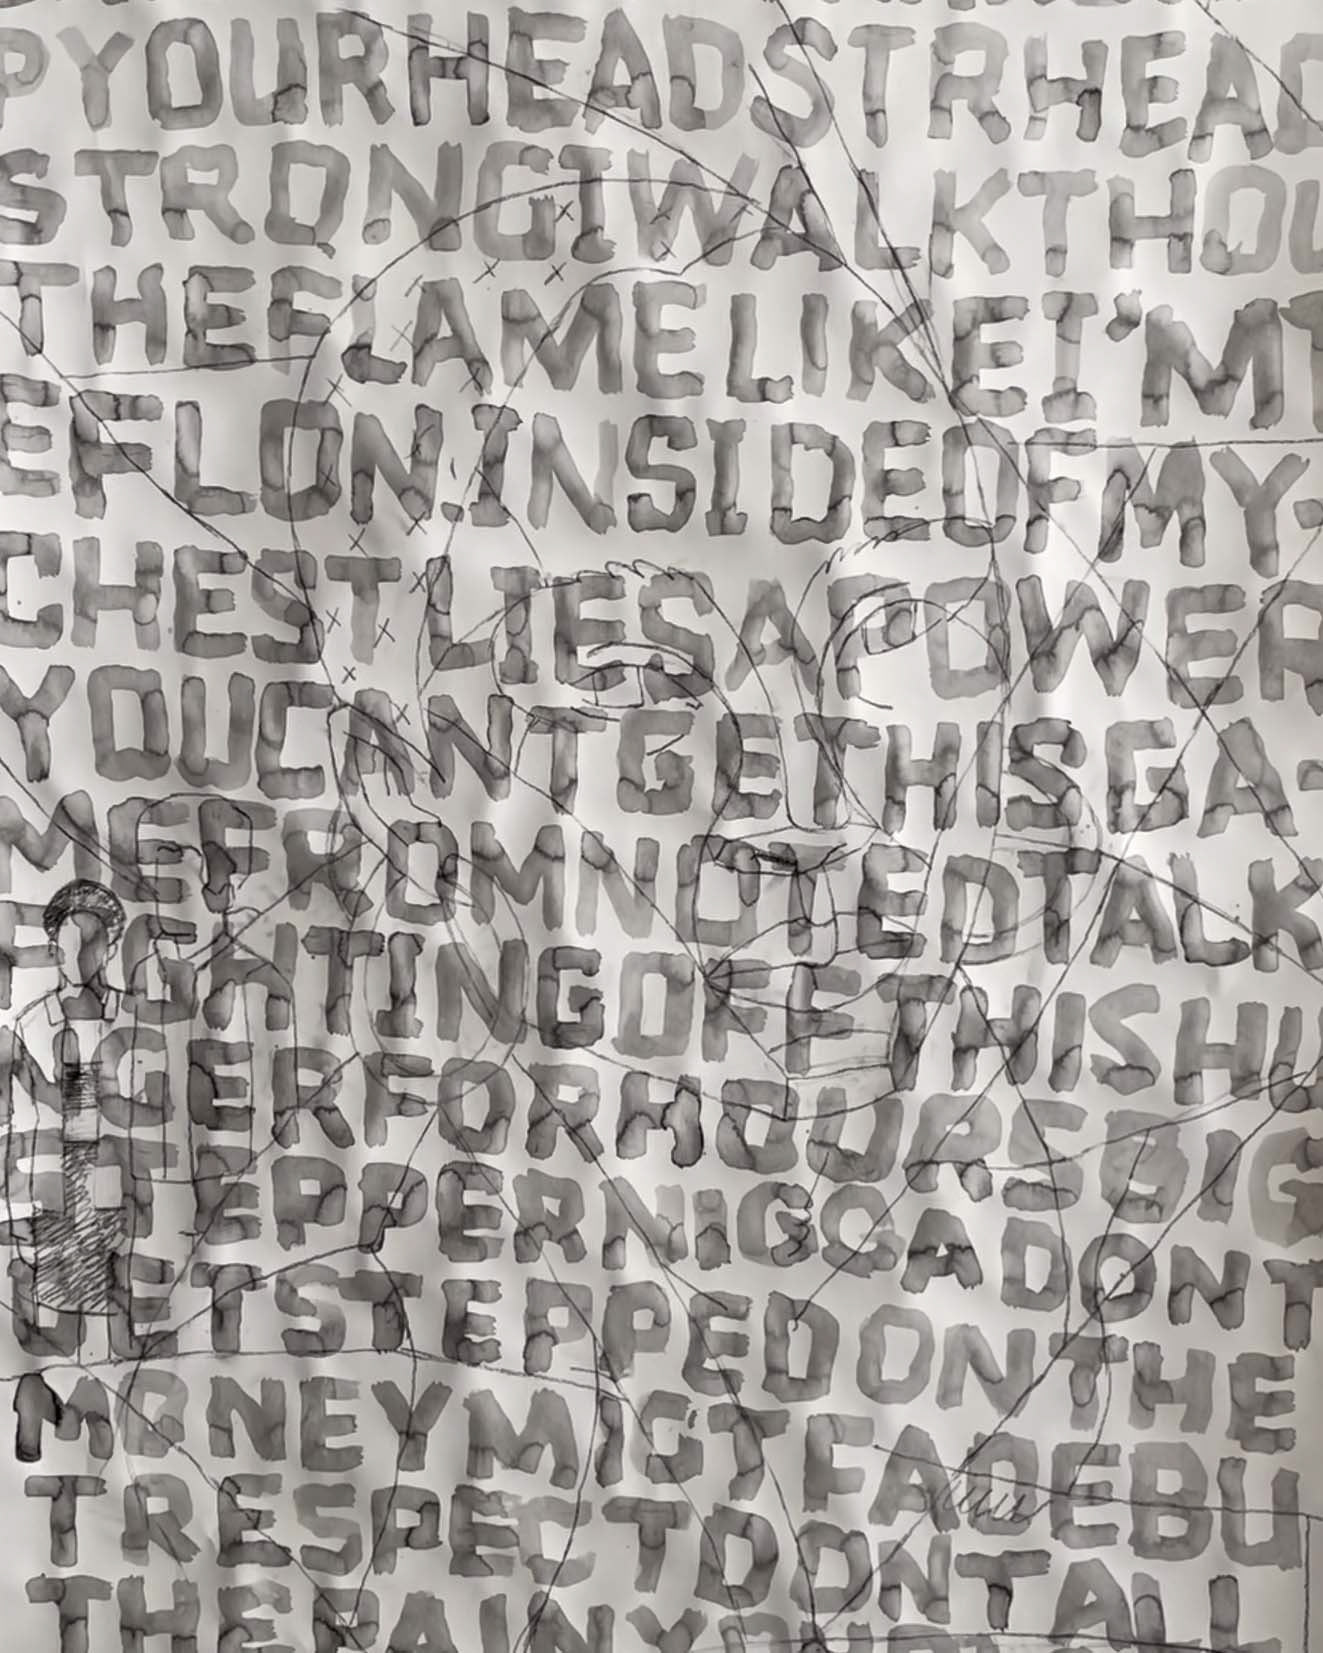 PYOURHEADSTRHEAD
STRONGIWALKTHOU
THEFLAMELIKEI'MT
EFLON.INSIDEOFMY-
CHESTLIESAPOWER
YOUCANTGETHISGA-
MEFROMNOTEDTALK
FIGHTINGOFFTHISHU
NGERFORHOURSBIG
STEPPERNIGGADONT
GETSTEPPEDONTHE
MONEYMIGTFADEBU
TRESPECTDONTALL
THEPAINYOU